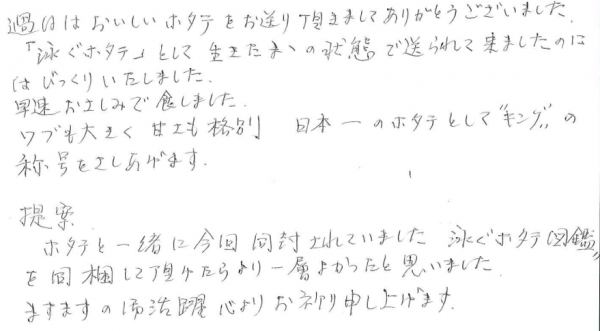 過日は おいしいホタテをお送り頂きましてありがとうございました.
「泳ぐホタテ」として生きたまゝの状態で送られて来ましたのに
はびっくりいたしました.
早速おさしみで食しました.
ツブも大きく 甘さも格別 日本一のホタテとして"キング"の
称号をさしあげます.
提案
ホタテと一緒に今回同封されていました 泳ぐホタテ図鑑"
を同梱して頂けたらより一層よかったと思いました.
ますますの御活躍 心よりお祈り申し上げます.